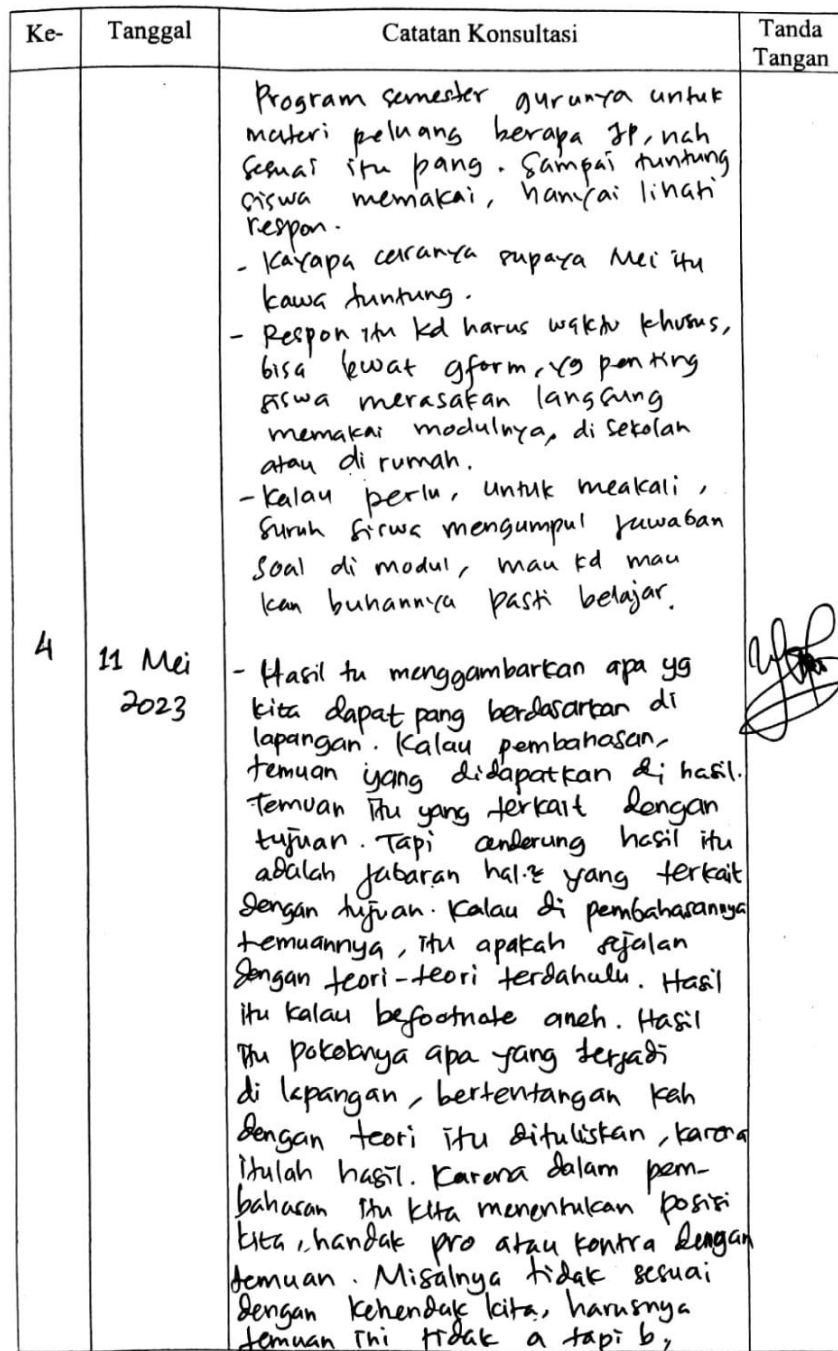 Ke- Tanggal Catatan Konsultasi Tanda Tangan
Program semester gurunya untuk
materi peluang berapa JP, nah
sesuai itu pang. Sampai tuntung
siswa memakai, hanyai lihati
respon.
- Kayapa caranya supaya Mei itu
kawa tuntung.
- Respon itu kd harus waktu khusus,
bisa lewat gform, yg penting
siswa merasakan langsung
memakai modulnya, di sekolah
atau di rumah.
- Kalau perlu, untuk meakali,
suruh siswa mengumpul jawaban
soal di modul, mau kd mau
kan buhannya pasti belajar.
4 11 Mei 2023
- Hasil tu menggambarkan apa yg
kita dapat pang berdasarkan di
lapangan. Kalau pembahasan,
temuan yang didapatkan di hasil.
Temuan itu yang terkait dengan
tujuan. Tapi cenderung hasil itu
adalah jabaran hal-2 yang terkait
dengan tujuan. Kalau di pembahasannya
temuannya, itu apakah sejalan
dengan teori-teori terdahulu. Hasil
itu kalau befootnote aneh. Hasil
itu pokoknya apa yang terjadi
di lapangan, bertentangan kah
dengan teori itu dituliskan, karena
itulah hasil. Karena dalam pem-
bahasan itu kita menentukan posisi
kita, handak pro atau kontra dengan
temuan. Misalnya tidak sesuai
dengan kehendak kita, harusnya
temuan ini tidak a tapi b,